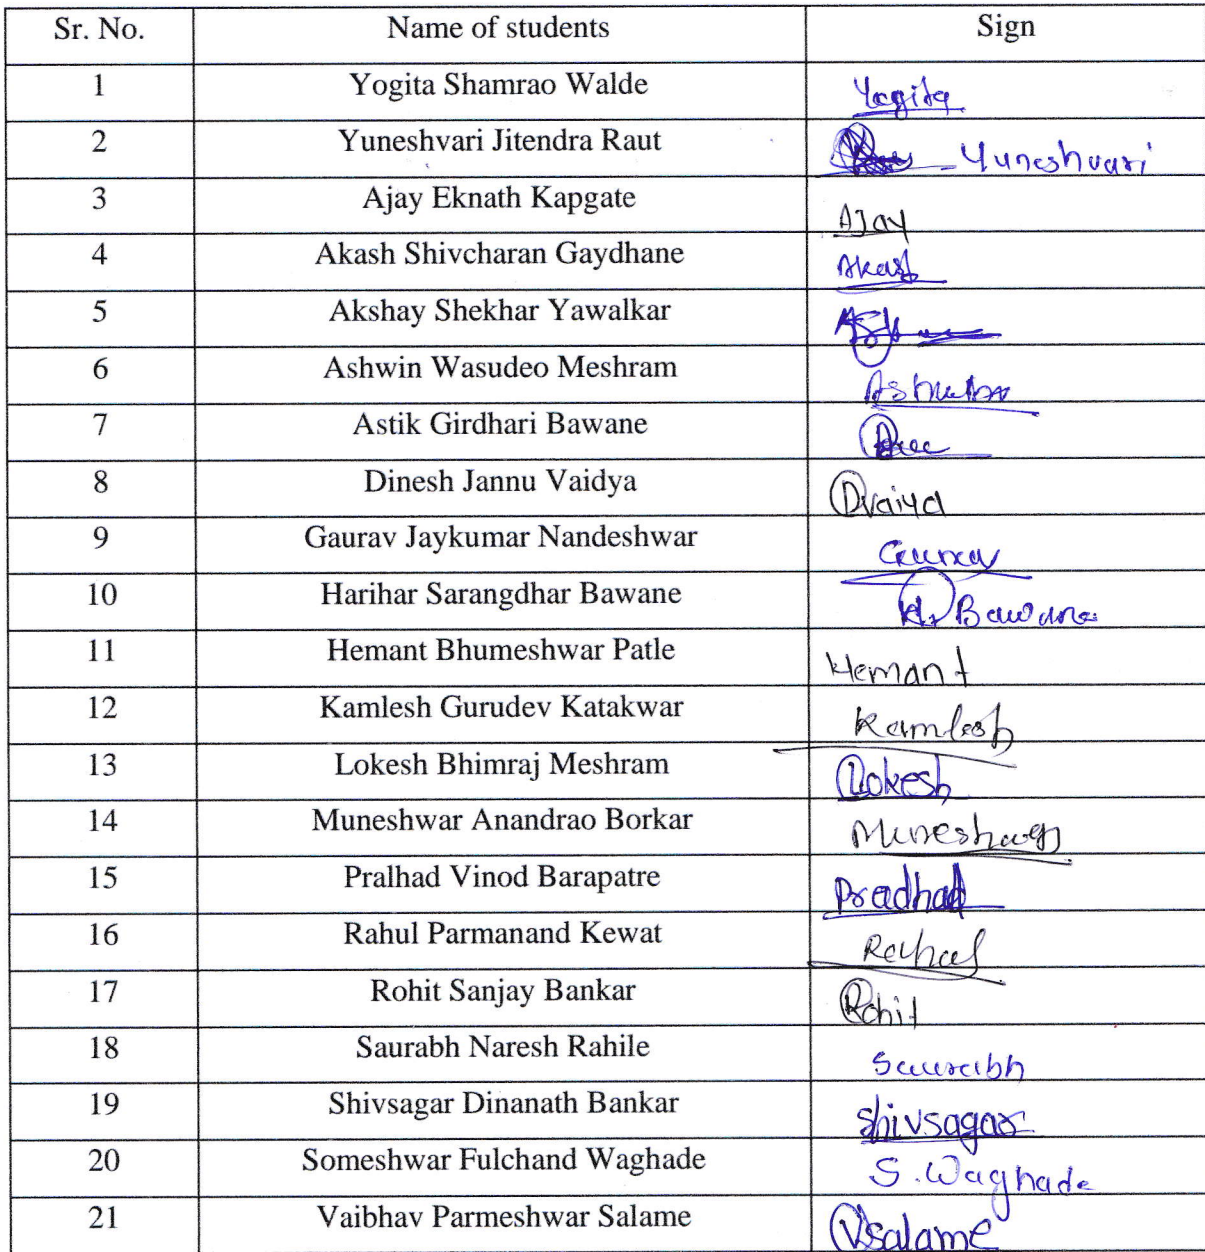 Sr. No. Name of students Sign
1 Yogita Shamrao Walde Yogita
2 Yuneshvari Jitendra Raut Yuneshvari
3 Ajay Eknath Kapgate AJay
4 Akash Shivcharan Gaydhane Akash
5 Akshay Shekhar Yawalkar
6 Ashwin Wasudeo Meshram
7 Astik Girdhari Bawane
8 Dinesh Jannu Vaidya Dvaiya
9 Gaurav Jaykumar Nandeshwar Gaurav
10 Harihar Sarangdhar Bawane Bawane
11 Hemant Bhumeshwar Patle Hemant
12 Kamlesh Gurudev Katakwar Kamlesh
13 Lokesh Bhimraj Meshram Lokesh
14 Muneshwar Anandrao Borkar Muneshwar
15 Pralhad Vinod Barapatre Pradhad
16 Rahul Parmanand Kewat Rahul
17 Rohit Sanjay Bankar Rohit
18 Saurabh Naresh Rahile Saurabh
19 Shivsagar Dinanath Bankar Shivsagar
20 Someshwar Fulchand Waghade S. Waghade
21 Vaibhav Parmeshwar Salame Vsalame